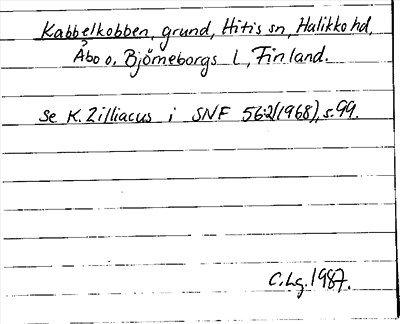 Kabbelkobben, grund, Hitis sn, Halikko hd,
Åbo o. Björneborgs l., Finland.
Se K. Zilliacus i SNF 56:2(1968), s. 99.
C. Lg. 1987.